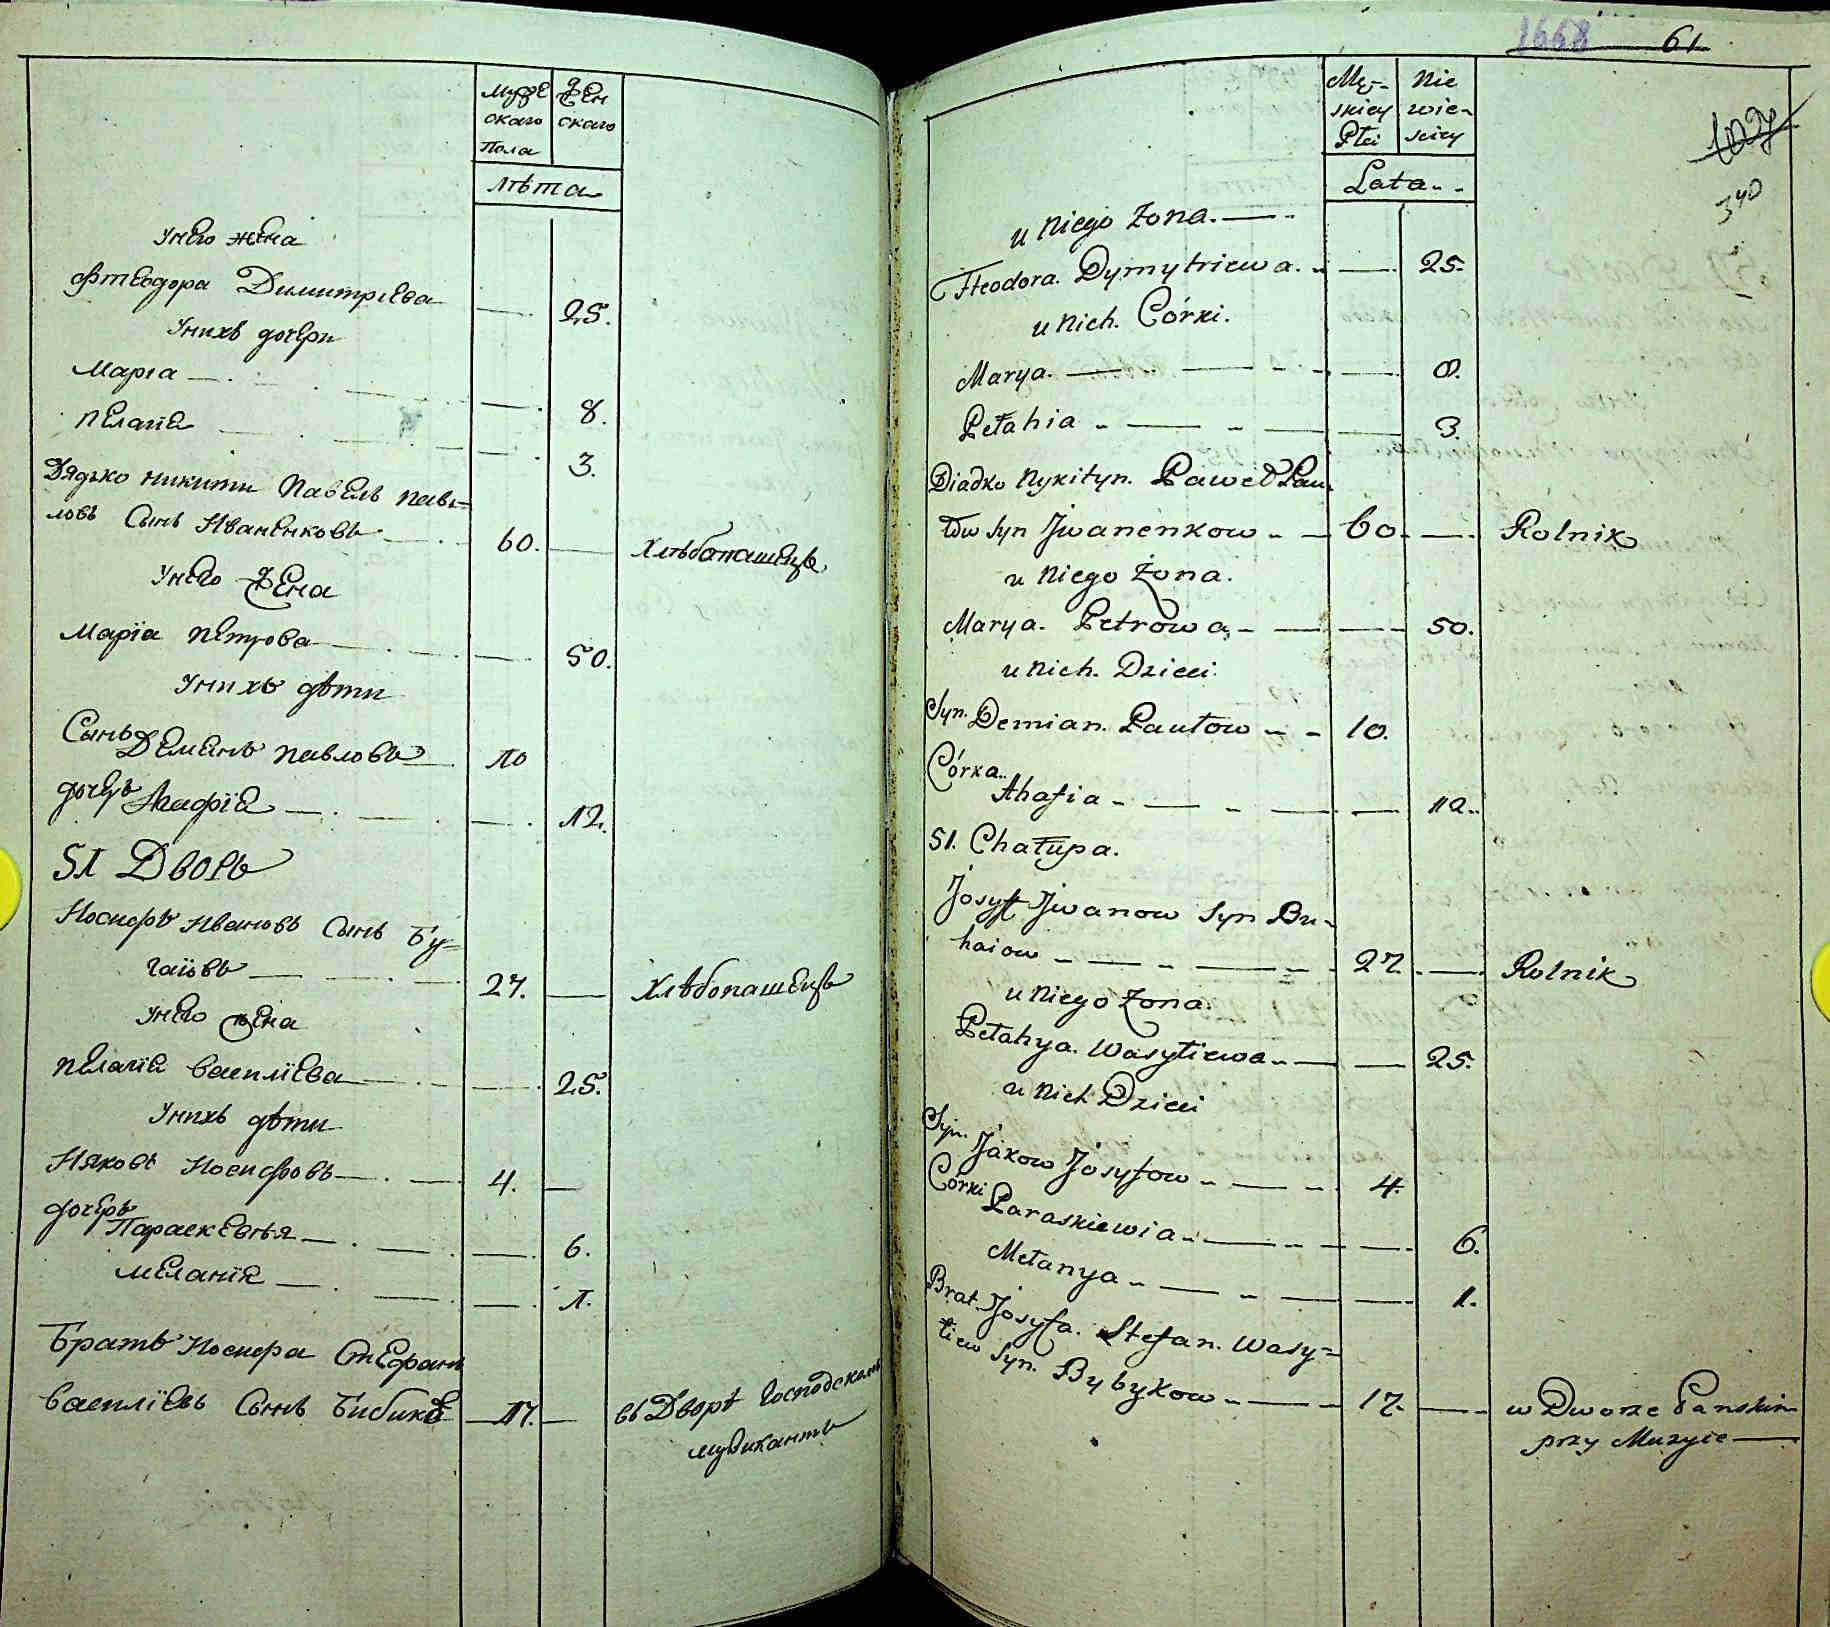 мужескаго женскаго
пола
лѣта
У него жена
Фтеодора Димитрiева — 25.
У нихъ дочери
Марiа — 8.
Пелагiе — 3.
Дядько Никити Павелъ Пав-
ловъ сынъ Иваненковъ — 60. — хлѣбопашецъ
У него жена
Марiа Петрова — 50.
У нихъ дѣти
Сынъ Демянъ Павловъ 10
дочерь Агафiе — 12.
51 Дворъ
Иосифъ Ивановъ сынъ Бу=
гаiовъ — 27. — хлѣбопашецъ
У него жена
Пелагiе Василiева — 25.
У нихъ дѣти
Ияковъ Иосифовъ — 4. —
дочерь
Параскевiя — 6.
Меланiе — 1.
Братъ Иосифа Стефанъ
Василiевъ сынъ Бибикъ — 17. — въ Дворѣ Господскомъ
музикантъ
1668 61
1027
340
Mę- Nie
skiey wie-
Płci skiey
Lata
u Niego Żona.
Fteodora. Dymytriewa. — 25.
u Nich. Córki.
Marya. — 8.
Pełahia — 3.
Diadko Nykityn. Paweł Paw
łow syn Jwanenkow — 60. — Rolnik
u Niego Żona.
Marya. Petrowa — 50.
u Nich. Dzieci.
Syn. Demian. Pawłow — 10.
Córka.
Ahafia — 12.
51. Chałupa.
Josyf Jwanow Syn Bu-
haiow — 27. — Rolnik
u Niego Żona.
Pełahya. Wasyliewa — 25.
u Nich Dzieci
Syn. Jakow Josyfow — 4.
Córki
Paraskiewia — 6.
Mełanya — 1.
Brat. Josyfa. Stefan. Wasy=
liew Syn. Bybykow — 17. — w Dworze Panskim
przy Muzyce —